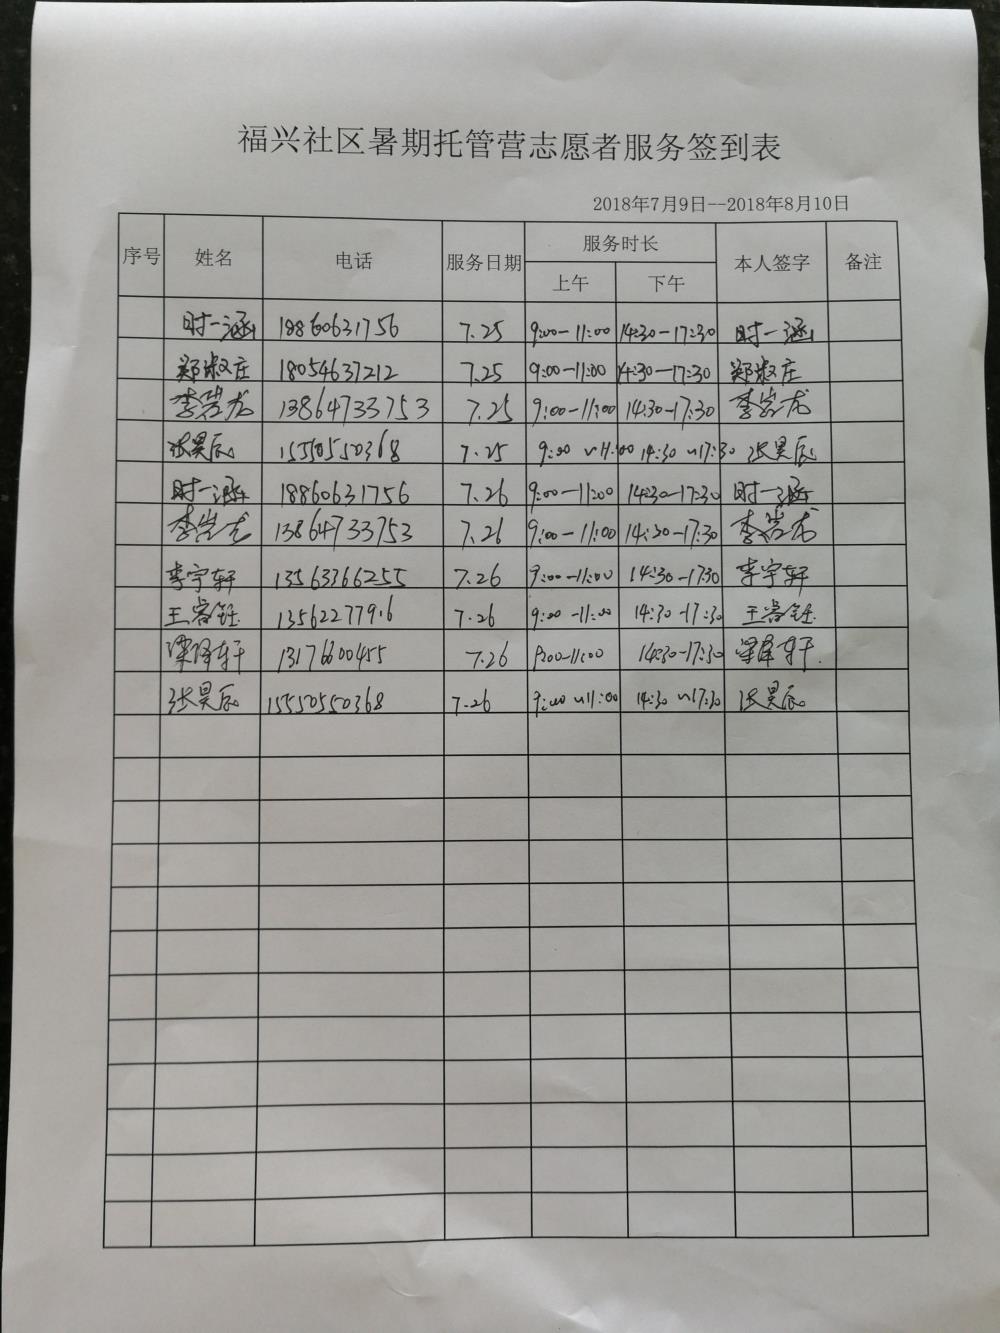 福兴社区暑期托管营志愿者服务签到表
2018年7月9日--2018年8月10日
序号 姓名 电话 服务日期 服务时长 本人签字 备注
上午 下午
时一涵 18860631756 7.25 9:00-11:00 14:30-17:30 时一涵
郑淑庄 18054637212 7.25 9:00-11:00 14:30-17:30 郑淑庄
李岩龙 13864733753 7.25 9:00-11:00 14:30-17:30 李岩龙
张昊辰 15550550368 7.25 9:00~11:00 14:30~17:30 张昊辰
时一涵 18860631756 7.26 9:00-11:00 14:30-17:30 时一涵
李岩龙 13864733753 7.26 9:00-11:00 14:20-17:30 李岩龙
李宇轩 13563366255 7.26 9:00-11:00 14:30-17:30 李宇轩
王睿钰 7.26 9:00-11:00 14:30-17:30 王睿钰
梁泽轩 13176600455 7.26 9:00-11:00 14:30-17:30 梁泽轩
张昊辰 15550550368 7.26 9:00~11:00 14:30~17:30 张昊辰